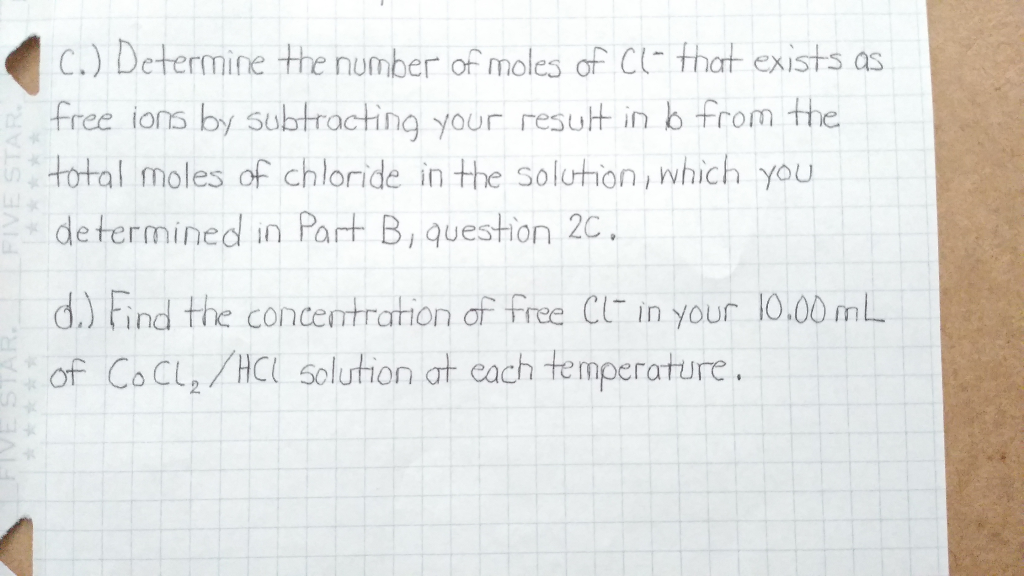 FIVE STAR.
FIVE STAR.
C.) Determine the number of moles of Cl⁻ that exists as
free ions by subtracting your result in b from the
total moles of chloride in the solution, which you
determined in Part B, question 2C.
d.) Find the concentration of free Cl⁻ in your 10.00 mL
of CoCl₂/HCl solution at each temperature.